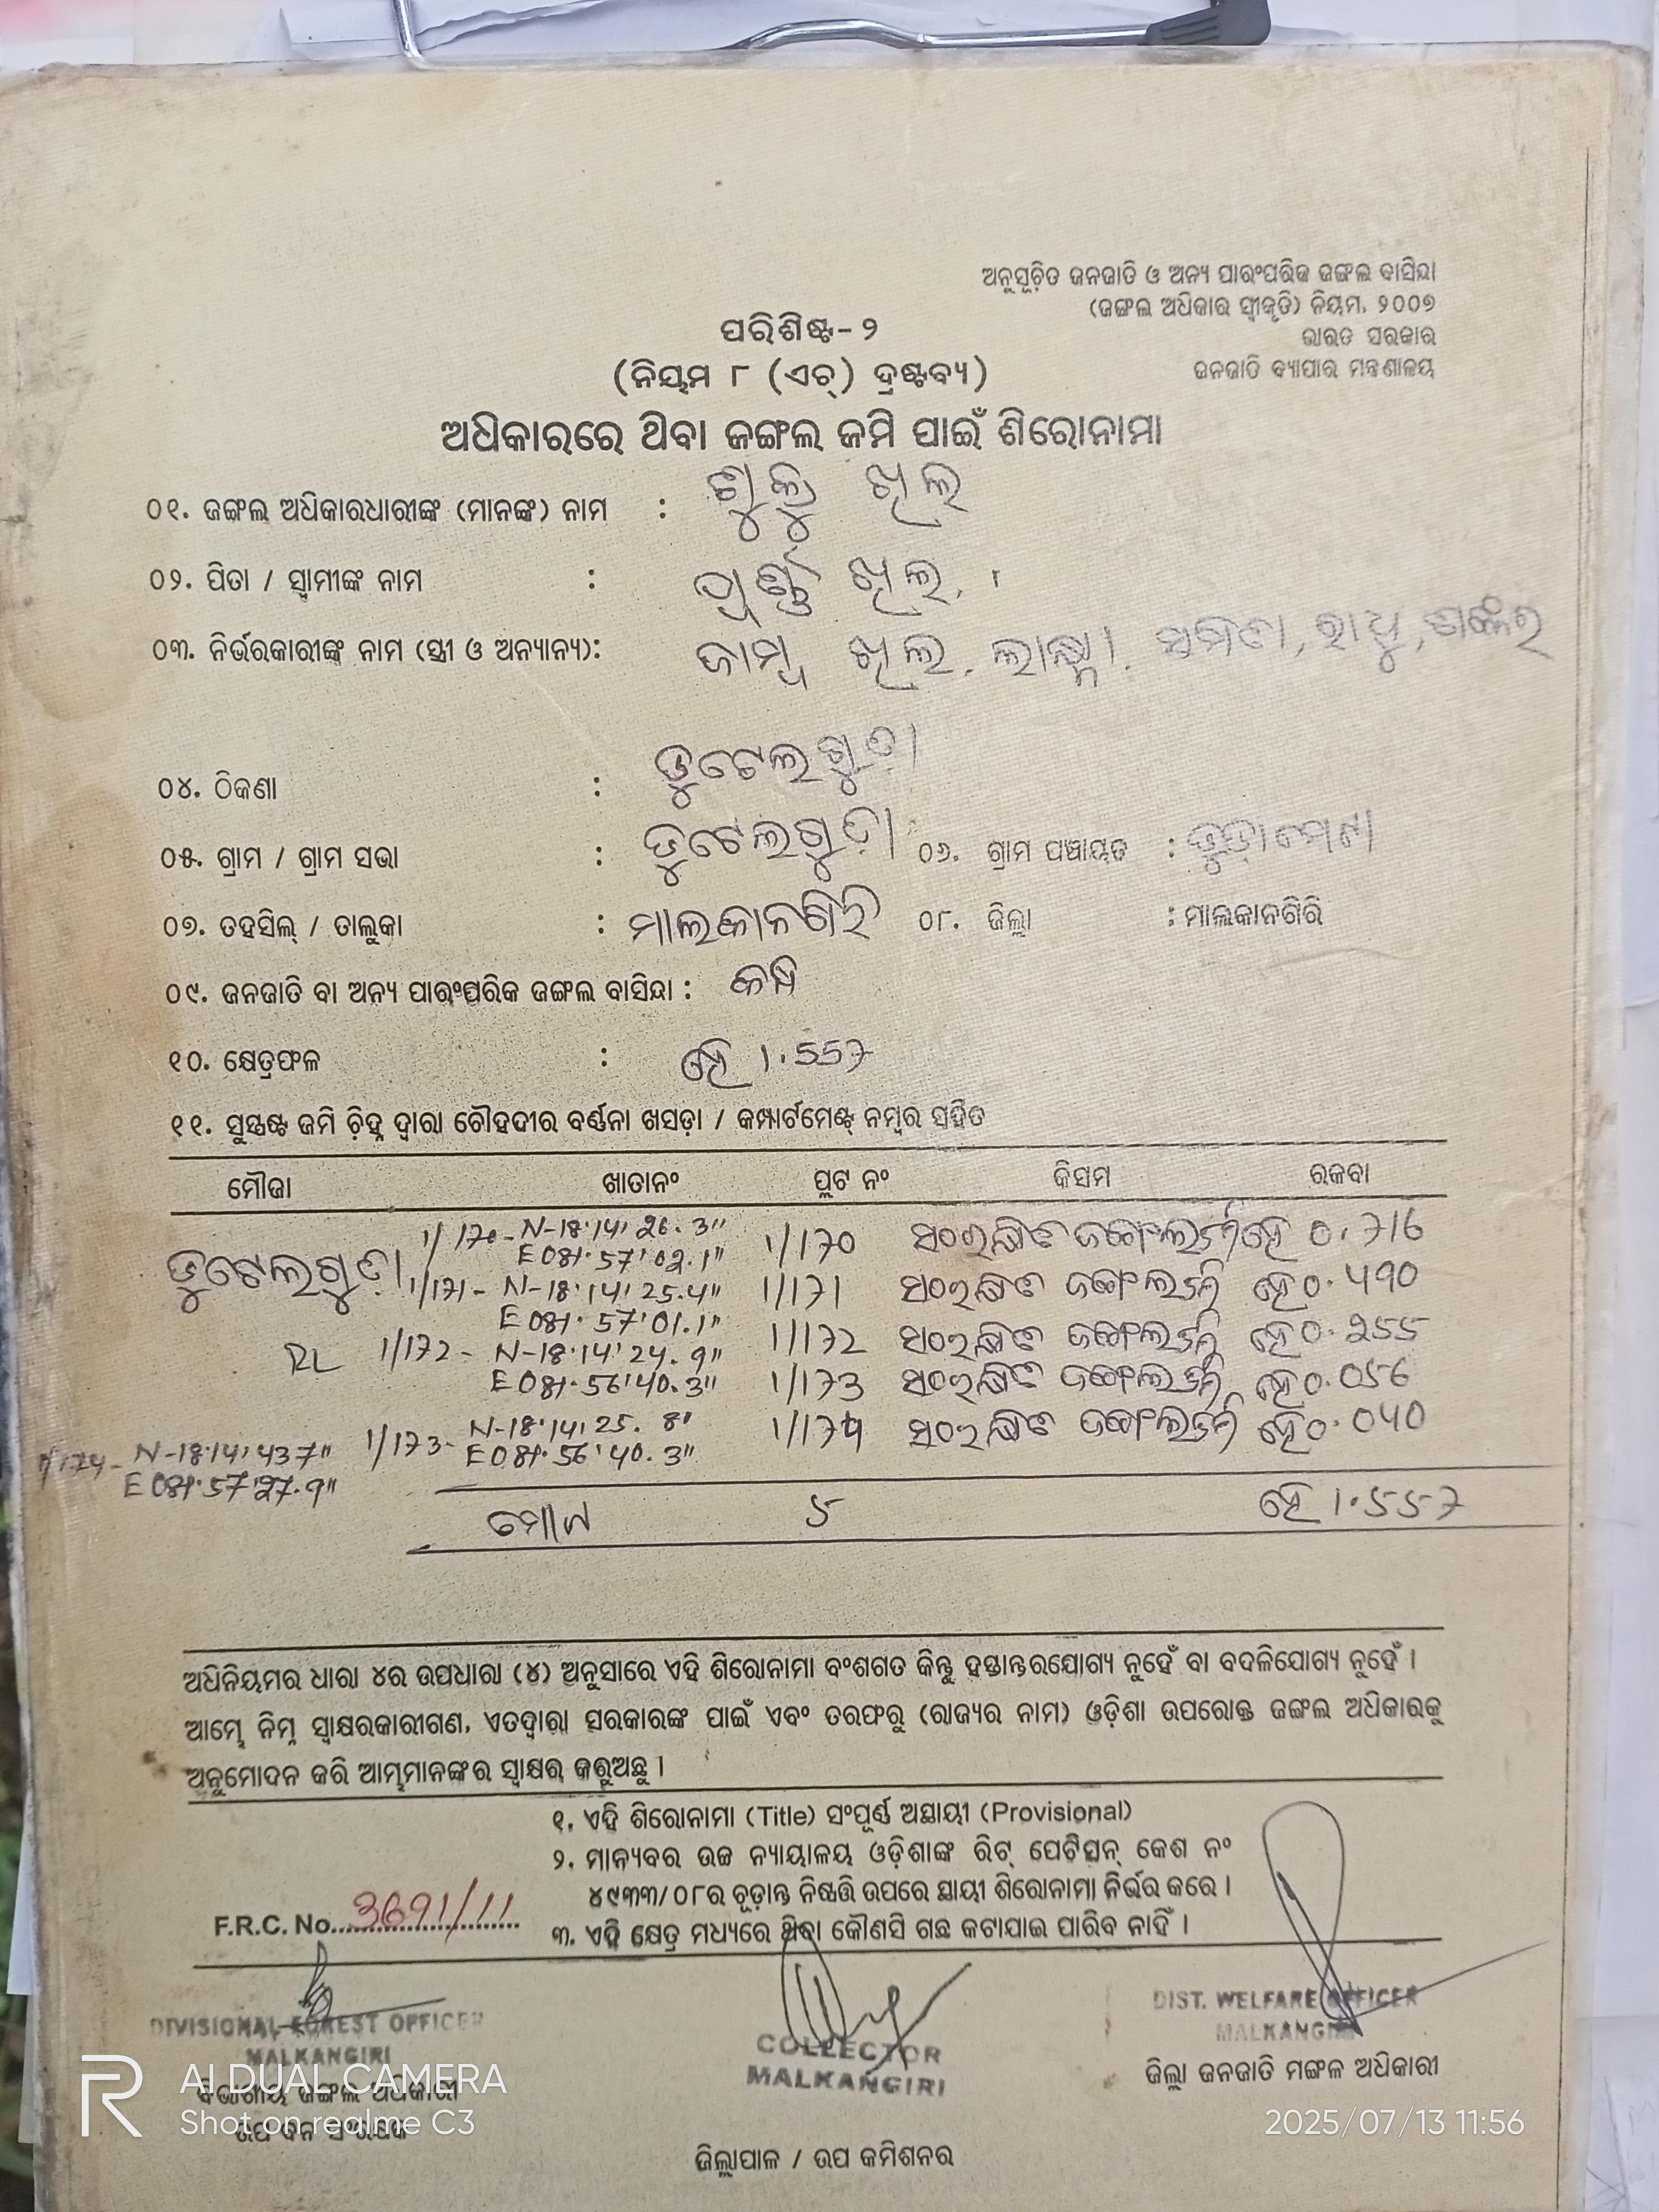 ଅନୁସୂଚିତ ଜନଜାତି ଓ ଅନ୍ୟ ପାରଂପରିକ ଜଙ୍ଗଲ ବାସିନ୍ଦା
(ଜଙ୍ଗଲ ଅଧିକାର ସ୍ୱୀକୃତି) ନିୟମ, ୨୦୦୭
ଭାରତ ସରକାର
ଜନଜାତି ବ୍ୟାପାର ମନ୍ତ୍ରଣାଳୟ
ପରିଶିଷ୍ଟ-୨
(ନିୟମ ୮ (ଏଚ୍) ଦ୍ରଷ୍ଟବ୍ୟ)
ଅଧିକାରରେ ଥିବା ଜଙ୍ଗଲ ଜମି ପାଇଁ ଶିରୋନାମା
୦୧. ଜଙ୍ଗଲ ଅଧିକାରଧାରୀଙ୍କ (ମାନଙ୍କ) ନାମ : ଶୁକ୍ରୁ ଖିଲ
୦୨. ପିତା / ସ୍ୱାମୀଙ୍କ ନାମ : ପୂର୍ଣ୍ଣ ଖିଲ
୦୩. ନିର୍ଭରକାରୀଙ୍କ ନାମ (ସ୍ତ୍ରୀ ଓ ଅନ୍ୟାନ୍ୟ): ଖିଲ,
୦୪. ଠିକଣା : ଡୁଟେଲଗୁଡ଼ା
୦୫. ଗ୍ରାମ / ଗ୍ରାମ ସଭା : ଡୁଟେଲଗୁଡ଼ା ୦୬. ଗ୍ରାମ ପଞ୍ଚାୟତ :
୦୭. ତହସିଲ୍ / ତାଲୁକା : ମାଲକାନଗିରି ୦୮. ଜିଲ୍ଲା : ମାଲକାନଗିରି
୦୯. ଜନଜାତି ବା ଅନ୍ୟ ପାରଂପରିକ ଜଙ୍ଗଲ ବାସିନ୍ଦା : କନ୍ଧ
୧୦. କ୍ଷେତ୍ରଫଳ : ହେ 1.557
୧୧. ସୁସ୍ପଷ୍ଟ ଜମି ଚିହ୍ନ ଦ୍ୱାରା ଚୌହଦୀର ବର୍ଣ୍ଣନା ଖସଡ଼ା / କମ୍ପାର୍ଟମେଣ୍ଟ୍ ନମ୍ବର ସହିତ
ମୌଜା ଖାତାନଂ ପ୍ଲଟ ନଂ କିସମ ରକବା
1/170- N-18°14'26.3" 1/170 ସଂରକ୍ଷିତ ଜଙ୍ଗଲ ଜମି ହେ 0.716
ଡୁଟେଲଗୁଡ଼ା E081°57'02.1"
1/171- N-18°14'25.4" 1/171 ସଂରକ୍ଷିତ ଜଙ୍ଗଲ ଜମି ହେ 0.490
E081°57'01.1"
RL 1/172- N-18°14'24.9" 1/172 ସଂରକ୍ଷିତ ଜଙ୍ଗଲ ଜମି ହେ 0.255
E081°56'40.3" 1/173 ସଂରକ୍ଷିତ ଜଙ୍ଗଲ ଜମି ହେ 0.056
1/173- N-18°14'25.8" 1/174 ସଂରକ୍ଷିତ ଜଙ୍ଗଲ ଜମି ହେ 0.040
E081°56'40.3"
1/174- N-18°14'43.7"
E081°57'27.9"
ମୋଟ 5 ହେ 1.557
ଅଧିନିୟମର ଧାରା ୪ର ଉପଧାରା (୪) ଅନୁସାରେ ଏହି ଶିରୋନାମା ବଂଶଗତ କିନ୍ତୁ ହସ୍ତାନ୍ତରଯୋଗ୍ୟ ନୁହେଁ ବା ବଦଳିଯୋଗ୍ୟ ନୁହେଁ ।
ଆମ୍ଭେ ନିମ୍ନ ସ୍ୱାକ୍ଷରକାରୀଗଣ, ଏତଦ୍ୱାରା ସରକାରଙ୍କ ପାଇଁ ଏବଂ ତରଫରୁ (ରାଜ୍ୟର ନାମ) ଓଡ଼ିଶା ଉପରୋକ୍ତ ଜଙ୍ଗଲ ଅଧିକାରକୁ
ଅନୁମୋଦନ କରି ଆମ୍ଭମାନଙ୍କର ସ୍ୱାକ୍ଷର କରୁଅଛୁ ।
୧. ଏହି ଶିରୋନାମା (Title) ସଂପୂର୍ଣ୍ଣ ଅସ୍ଥାୟୀ (Provisional)
୨. ମାନ୍ୟବର ଉଚ୍ଚ ନ୍ୟାୟାଳୟ ଓଡ଼ିଶାଙ୍କ ରିଟ୍ ପେଟିସନ୍ କେଶ ନଂ
୪୯୩୩/୦୮ର ଚୂଡ଼ାନ୍ତ ନିଷ୍ପତ୍ତି ଉପରେ ସ୍ଥାୟୀ ଶିରୋନାମା ନିର୍ଭର କରେ ।
F.R.C. No. 3691/11
୩. ଏହି କ୍ଷେତ୍ର ମଧ୍ୟରେ ଥିବା କୌଣସି ଗଛ କଟାଯାଇ ପାରିବ ନାହିଁ ।
DIVISIONAL FOREST OFFICER
MALKANGIRI
ବିଭାଗୀୟ ଜଙ୍ଗଲ ଅଧିକାରୀ
ଉପ ବନ ସଂରକ୍ଷକ
COLLECTOR
MALKANGIRI
ଜିଲ୍ଲାପାଳ / ଉପ କମିଶନର
DIST. WELFARE OFFICER
MALKANGIRI
ଜିଲ୍ଲା ଜନଜାତି ମଙ୍ଗଳ ଅଧିକାରୀ
AI DUAL CAMERA
Shot on realme C3
2025/07/13 11:56